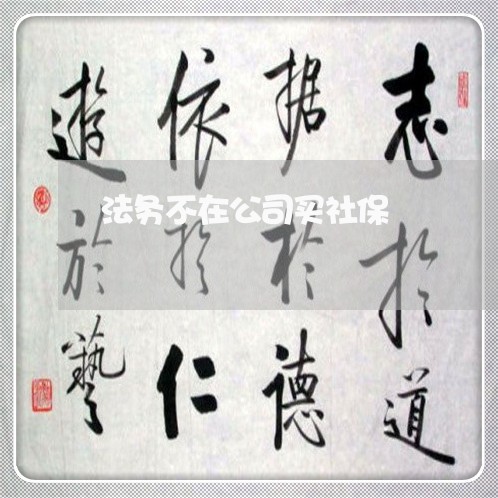 志於道
据於德
依於仁
遊於藝
法务不在公司买社保